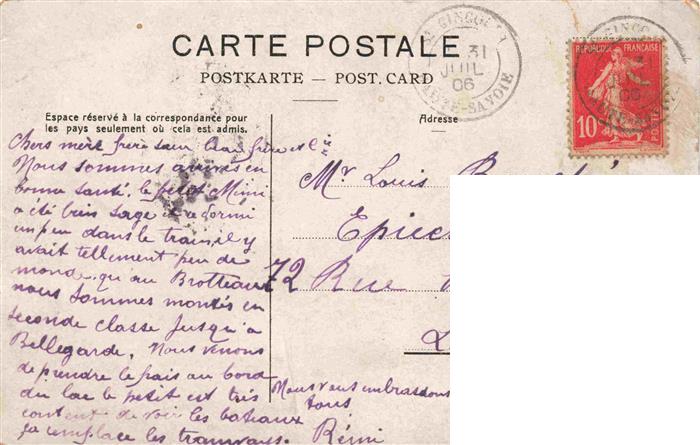 CARTE POSTALE
POSTKARTE — POST. CARD
ST GINGOLPH
31
JUIL
06
HAUTE-SAVOIE
RÉPUBLIQUE FRANÇAISE
10
POSTES
Espace réservé à la correspondance pour
les pays seulement où cela est admis.
Adresse
Chers mère frère sœur
Nous sommes arrivés en
bonne santé, le petit Mimi
a été bien sage il a dormi
un peu dans le train, il y
avait tellement peu de
monde qu'au Brotteaux
nous sommes montés en
seconde classe jusqu'à
Bellegarde. Nous venons
de prendre le frais au bord
du lac le petit est très
content de voir les bateaux
ça remplace les tramways.
Nous vous embrassons
tous
Rémi
Mr Louis
Epice
72 Rue